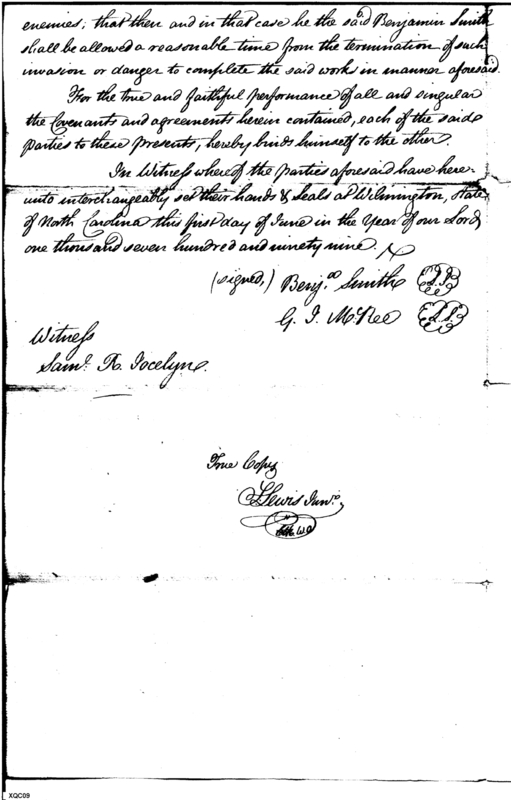 enemies; that then and in that case he the said Benjamin Smith
shall be allowed a reasonable time from the termination of such
invasion or danger to complete the said work in manner aforesaid.
For the true and faithful performance of all and singular
the Covenants and agreements herein contained, each of the said
parties to these presents, hereby binds himself to the other.
In Witness whereof the parties aforesaid have here-
unto interchangeably set their hands & seals at Wilmington, State
of North Carolina this first day of June in the Year of our Lord
one thousand seven hundred and ninety nine.
(signed,) Benjn. Smith
G. J. McRee L.S.
Witness
Saml. R. Jocelyn.
True Copy
S Lewis Junr.
XQC09